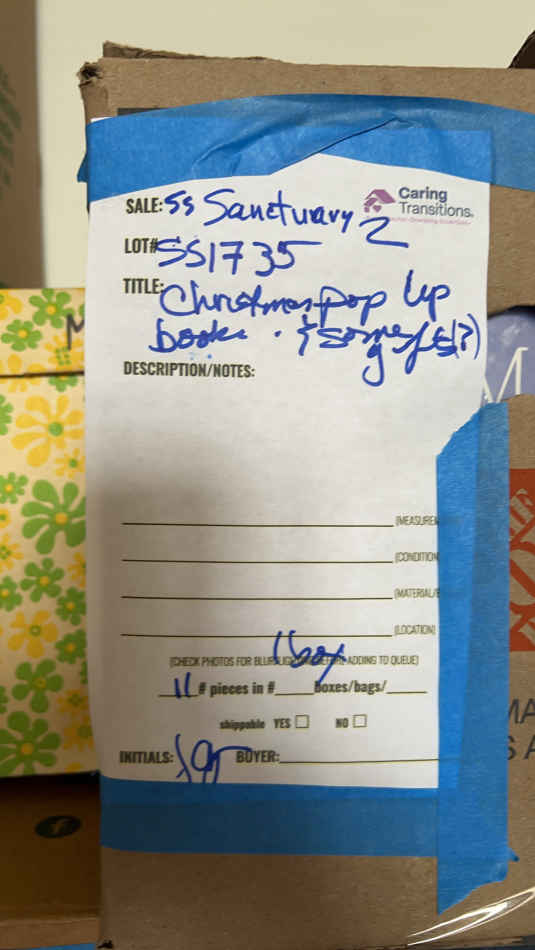 SALE: SS Sanctuary 2
Caring
Transitions®
LOT# SS1735
TITLE: Christmas pop up
books
DESCRIPTION/NOTES:
M
(CONDITION
(MATERIAL/
(LOCATION)
1 box
(CHECK PHOTOS FOR ADDING TO QUEUE)
11 # pieces in #____boxes/bags/____
shippable YES NO
INITIALS: BUYER: